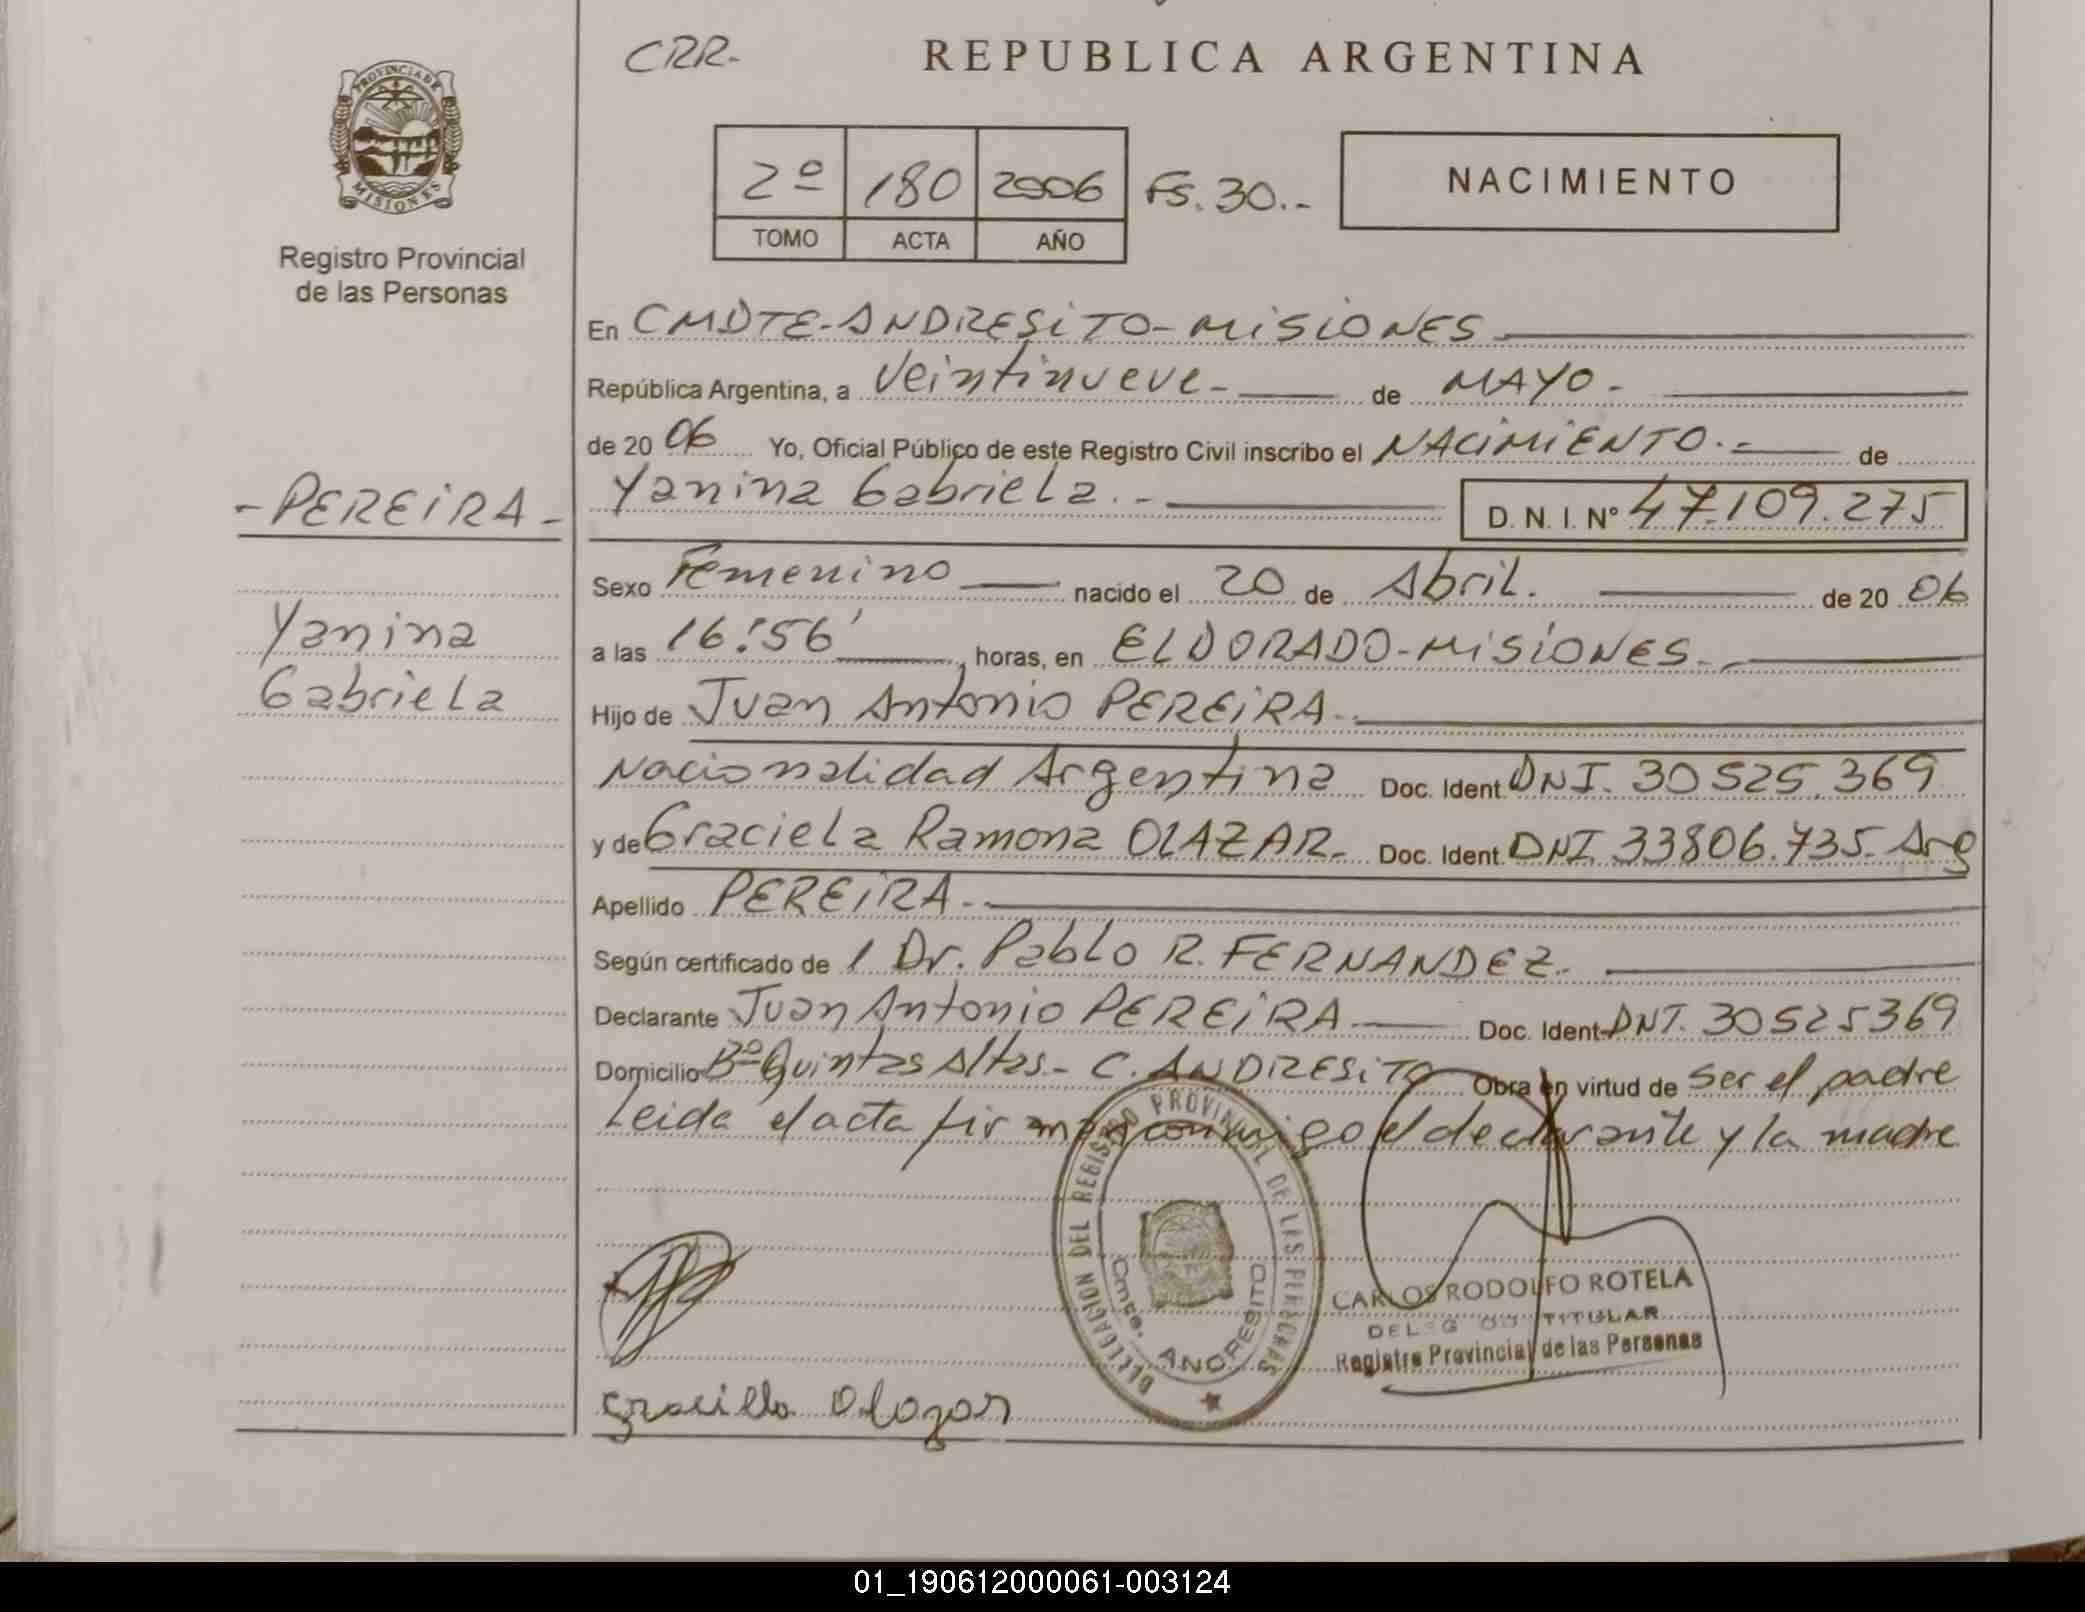 CRR-
REPUBLICA ARGENTINA
PROVINCIA DE
MISIONES
Registro Provincial
de las Personas
2º 180 2006 Fs. 30.-
TOMO ACTA AÑO
NACIMIENTO
En CMDTE-ANDRESiTO-MiSiONES
República Argentina, a Veintinueve- de MAYO-
de 20 06 Yo, Oficial Público de este Registro Civil inscribo el NACiMiENTO.- de
Yanina Gabriela.- D. N. I. Nº 47.109.275
-PEREiRA-
Yanina
Gabriela
Sexo Femenino nacido el 20 de Abril. de 20 06
a las 16:56' horas, en ELDORADO-MiSiONES.
Hijo de Juan Antonio PEREiRA-
Nacionalidad Argentina Doc. Ident. DNI. 30525.369
y de Graciela Ramona OLAZAR- Doc. Ident. DNI 33806.735. Arg
Apellido PEREiRA.-
Según certificado de 1 Dr. Pablo R. FERNANDEZ-
Declarante Juan Antonio PEREiRA Doc. Ident DNI. 30525369
Domicilio Bº Quintas Altas- C. ANDRESiTO Obra en virtud de ser el padre
Leida el acta firman conmigo el declarante y la madre
DELEGACION DEL REGISTRO PROVINCIAL DE LAS PERSONAS
Cmte. ANDRESITO
CARLOS RODOLFO ROTELA
DELEGADO TITULAR
Registro Provincial de las Personas
Graciela Olazar
01_190612000061-003124